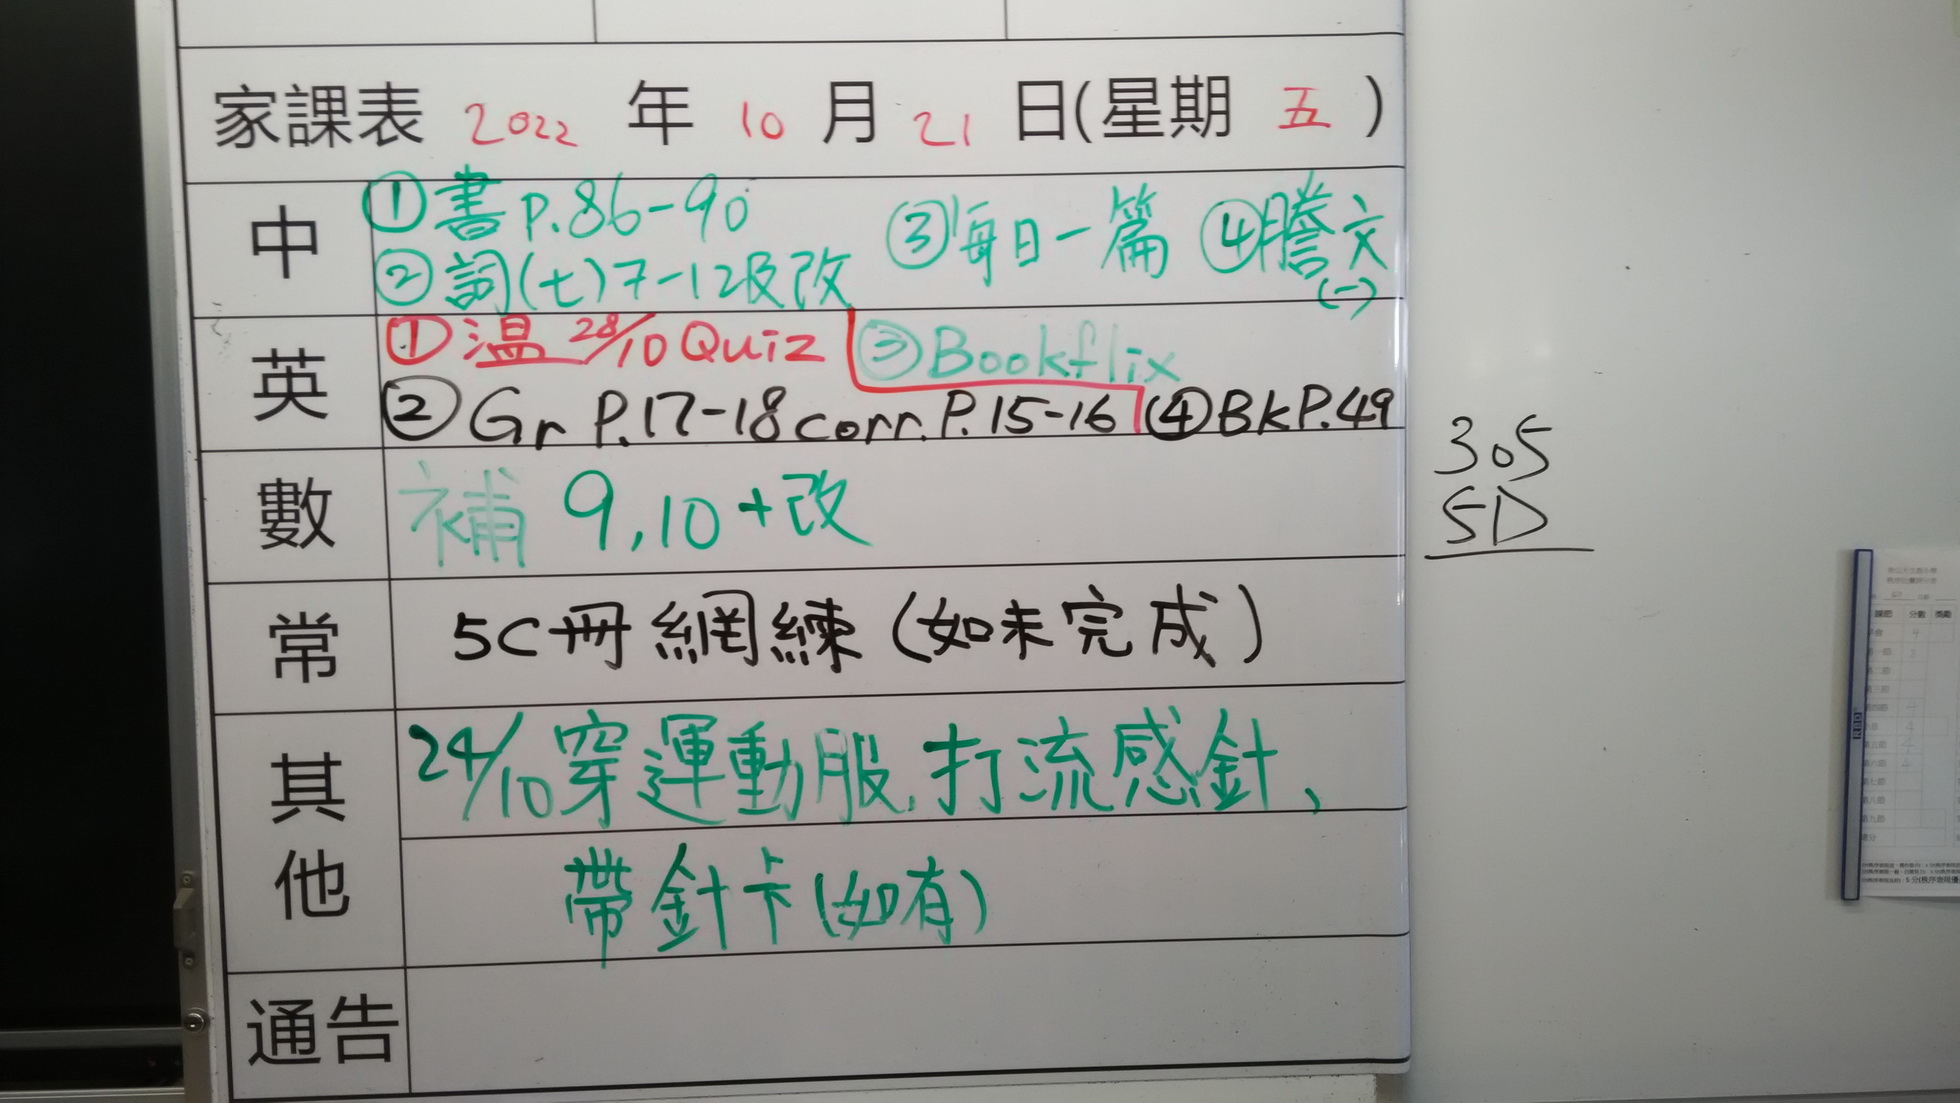 家課表 2022 年 10 月 21 日(星期 五 )
中 ①書P.86-90 ③每日一篇 ④謄文(一)
②詞(七)7-12及改
英 ①温 28/10 Quiz ③Bookflix
②Gr P.17-18 corr. P.15-16 ④BKP.49
數 補 9,10+改
常 5C冊網練(如未完成)
其他 24/10穿運動服,打流感針、
帶針卡(如有)
通告
305
5D